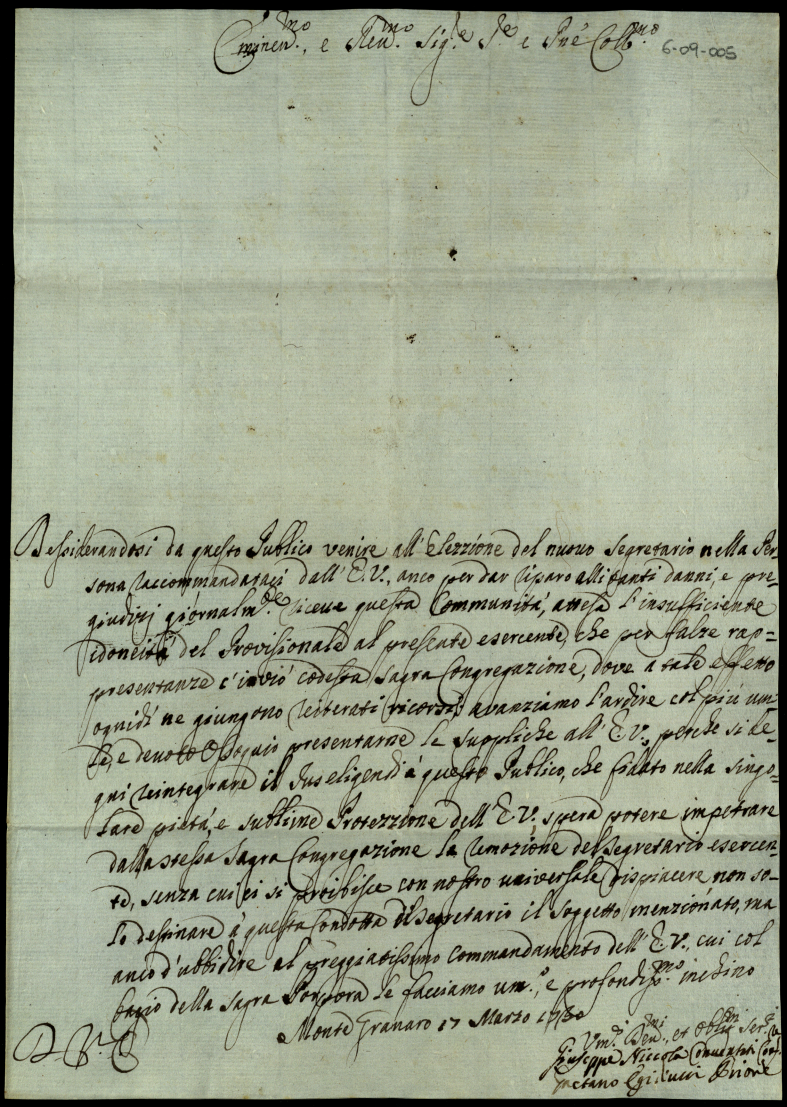 Eminen.mo, e Rev.mo Sig.re P.re e Pne Coll.mo
6-09-005
Dessiderandosi da questo Publico venire all'Elezzione del nuovo Segretario nella Per=
sona raccommandataci dall'E.V., anco per dar riparo alli tanti danni, e pre=
giudizj giornalm.te riceve questa Communità, attesa l'insufficiente
idoneità del Provisionale al presente esercente, che per false rap=
presentanze c'inviò codesta Sagra Congregazione, dove a tale effetto
ognidì ne giungono reiterati ricorsi; avanziamo l'ardire col più umi=
le, e devoto Ossequio presentarne le suppliche all'E.V., perche si de=
gni reintegrare il Jus eligendi à questo Publico, che fidato nella singo=
lare pietà, e sublime Protezzione dell'E.V. spera potere impetrare
dalla stessa Sagra Congregazione la remozione del Segretario esercen=
te, senza cui ci si proibisce con nostro universale dispiacere non so=
lo destinare à questa Condotta di Segretario il Soggetto menzionato, ma
anco d'ubbidire al preggiatissimo commandamento dell'E.V., cui col
bacio della Sagra Porpora le facciamo um.o, e profondiss.mo inchino
Monte Granaro 17 Marzo 1730
D. V. E.
Um.i Dev.mi, et Obl.mi Ser.i
Giuseppe Niccola Conventati Conf.
Gaetano Egidiucci Priore